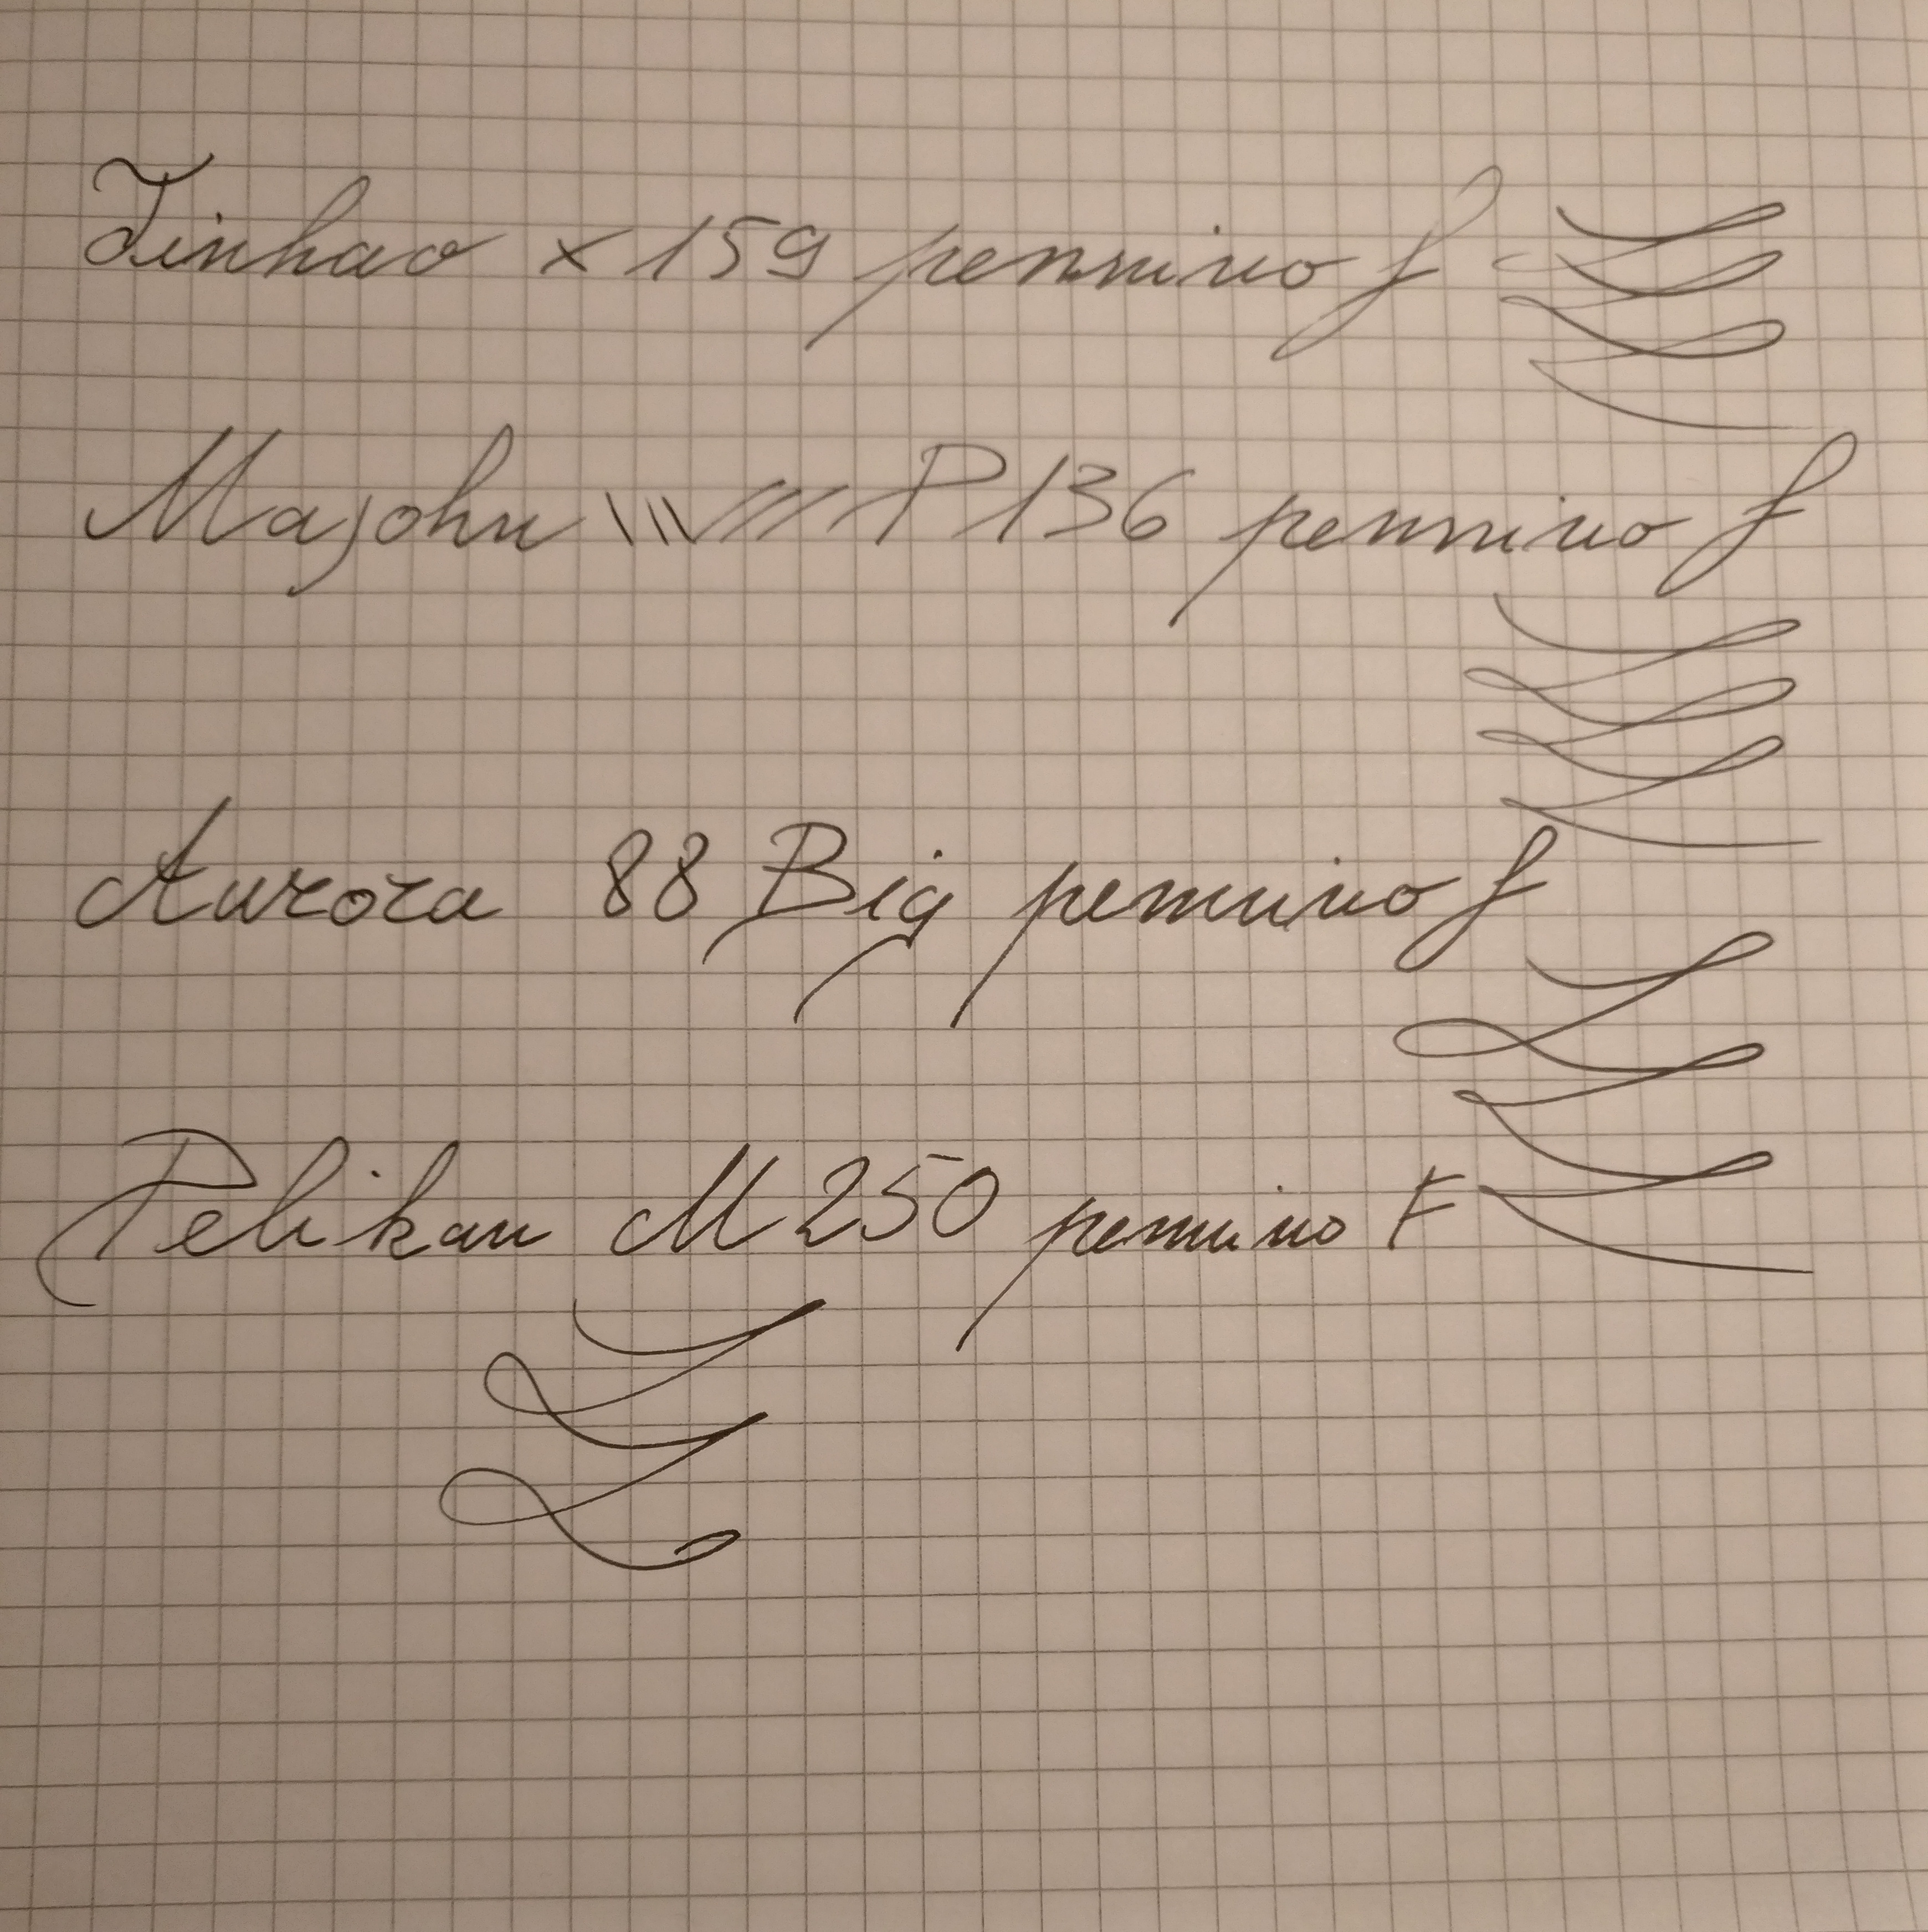 Jinhao x 159 pennino f
Majohn \\\ /// P136 pennino f
Aurora 88 Big pennino f
Pelikan M250 pennino F